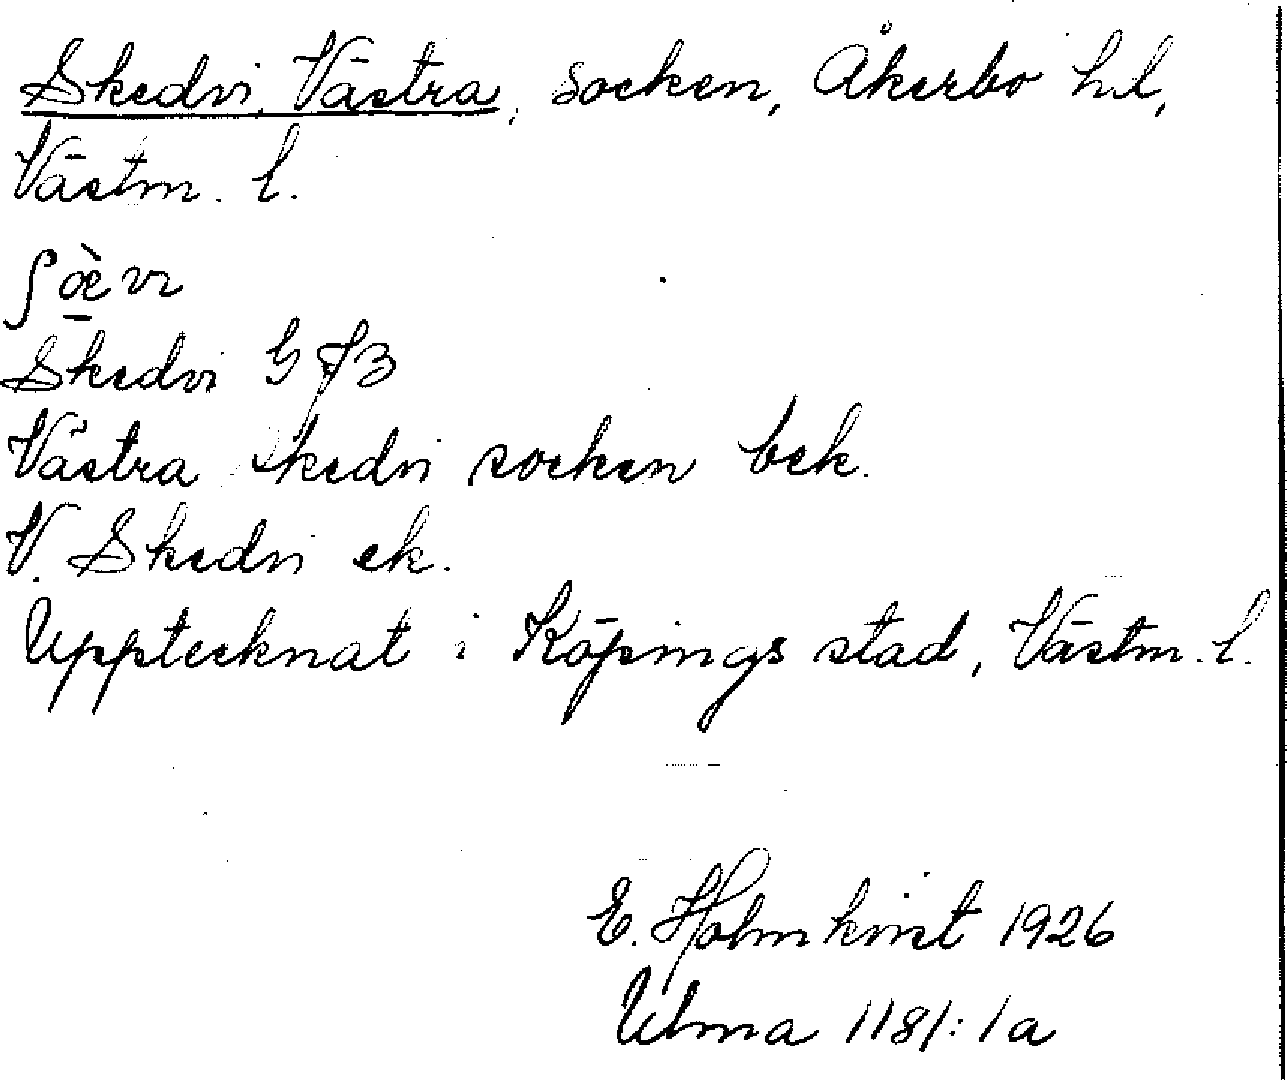 Skedvi, Västra, socken, Åkerbo hd,
Västm. l.
ʃæ̀vi
Skedvi GJB
Västra Skedvi socken bek.
V. Skedvi ek.
Upptecknat i Köpings stad, Västm. l.
E. Holmkvist 1926
Ulma 1181:1a